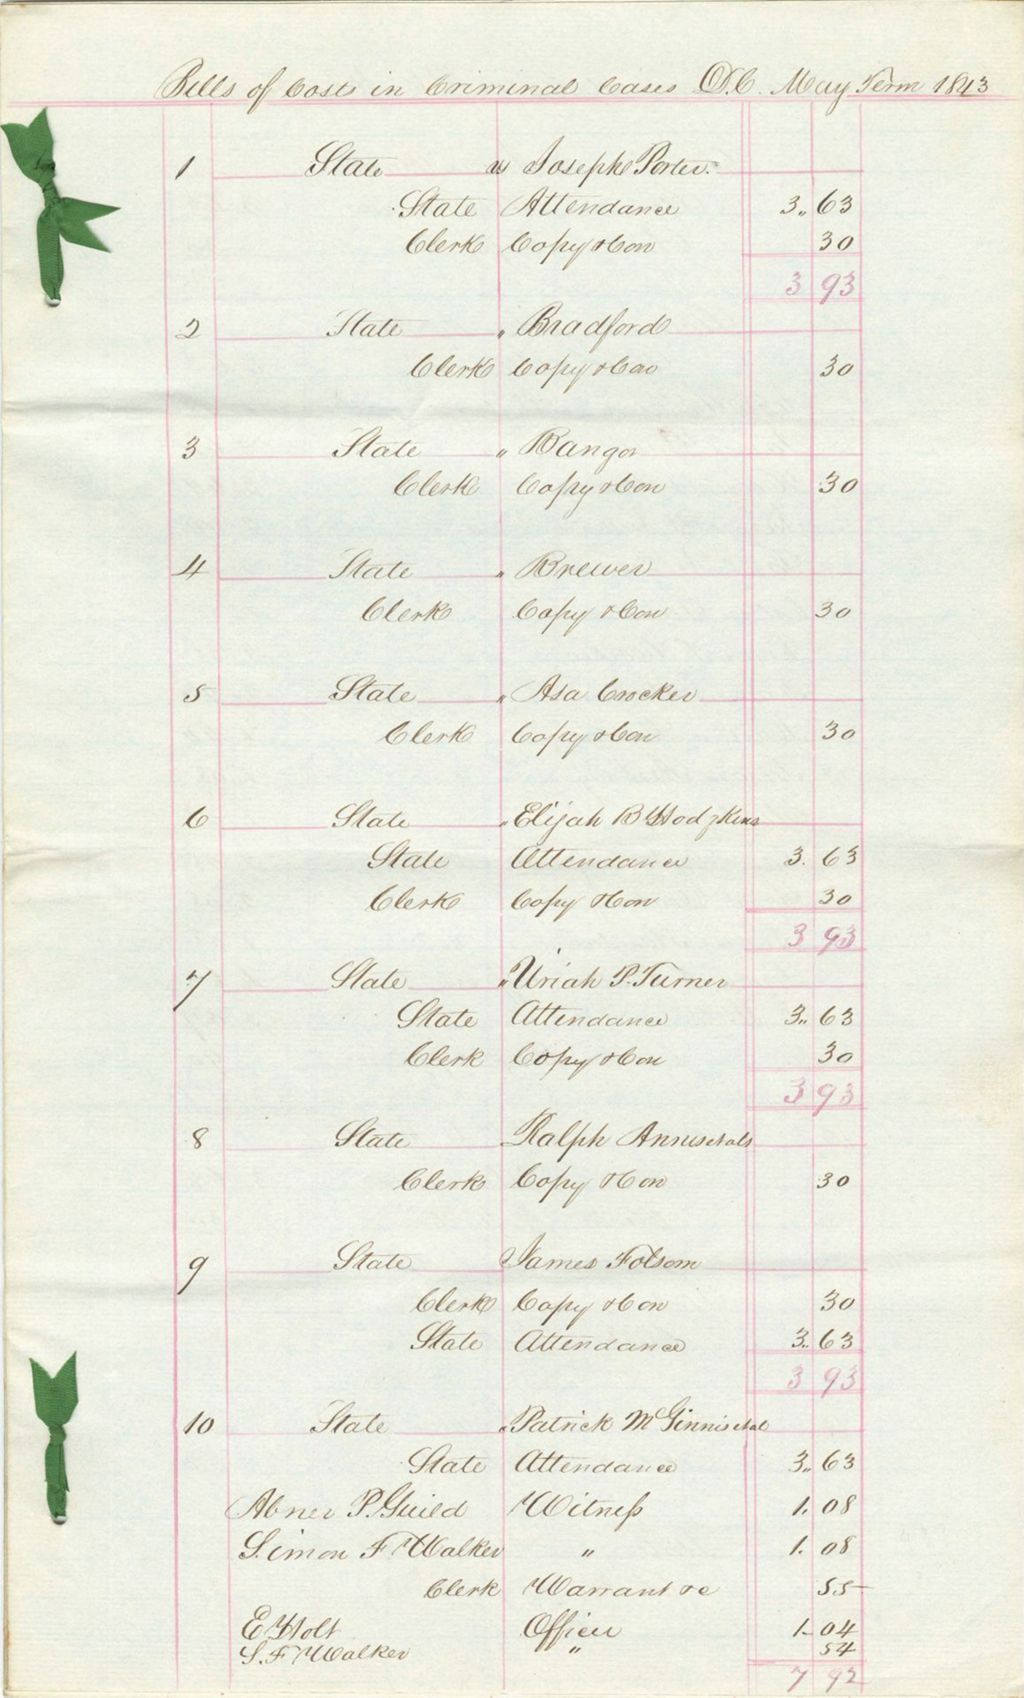 Bills of Costs in Criminal Cases D.C. May Term 1843
1 State vs Joseph Porter.
State Attendance 3.. 63
Clerk Copy & Con 30
3 93
2 State " Bradford
Clerk Copy & Con 30
3 State " Bangor
Clerk Copy & Con 30
4 State " Brewer
Clerk Copy & Con 30
5 State " Asa Crocker
Clerk Copy & Con 30
6 State " Elijah B Hodgkins
State Attendance 3. 63
Clerk Copy & Con 30
3 93
7 State " Uriah P. Turner
State Attendance 3.. 63
Clerk Copy & Con 30
3 93
8 State Ralph Annis et als
Clerk Copy & Con 30
9 State James Folsom
Clerk Copy & Con 30
State Attendance 3.. 63
3 93
10 State " Patrick McGinnis et al
State Attendance 3.. 63
Abner P. Guild Witness 1. 08
Simon F Walker " 1. 08
Clerk Warrant &c 55
E Holt Officer 1- 04
S. F Walker " 54
7 92